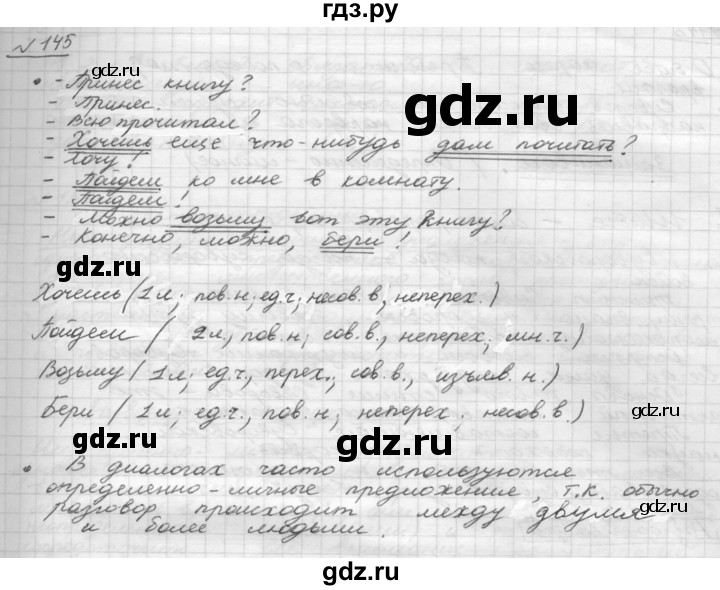 гдз.ру
№ 145
• - Принес книгу?
- Принес.
- Всю прочитал?
- Хочешь еще что-нибудь дам почитать?
- Хочу!
- Пойдем ко мне в комнату.
- Пойдем!
- Можно возьму вот эту книгу?
- Конечно, можно, бери!
gdz.ru
gdz.ru
Хочешь (1 л; пов.н; ед.ч; несов.в, неперех.)
Пойдем ( 2л., пов.н; сов.в., неперех; мн.ч.)
Возьму (1 л; ед.ч., перех., сов.в., изъяв.н.)
Бери (1 л; ед.ч., пов.н; неперех; несов.в.)
gdz.ru
gdz.ru
gdz.ru
• В диалогах часто используются
определенно-личные предложение, т.к. обычно
разговор происходит между двумя
и более людьми.
gdz.ru
gdz.ru